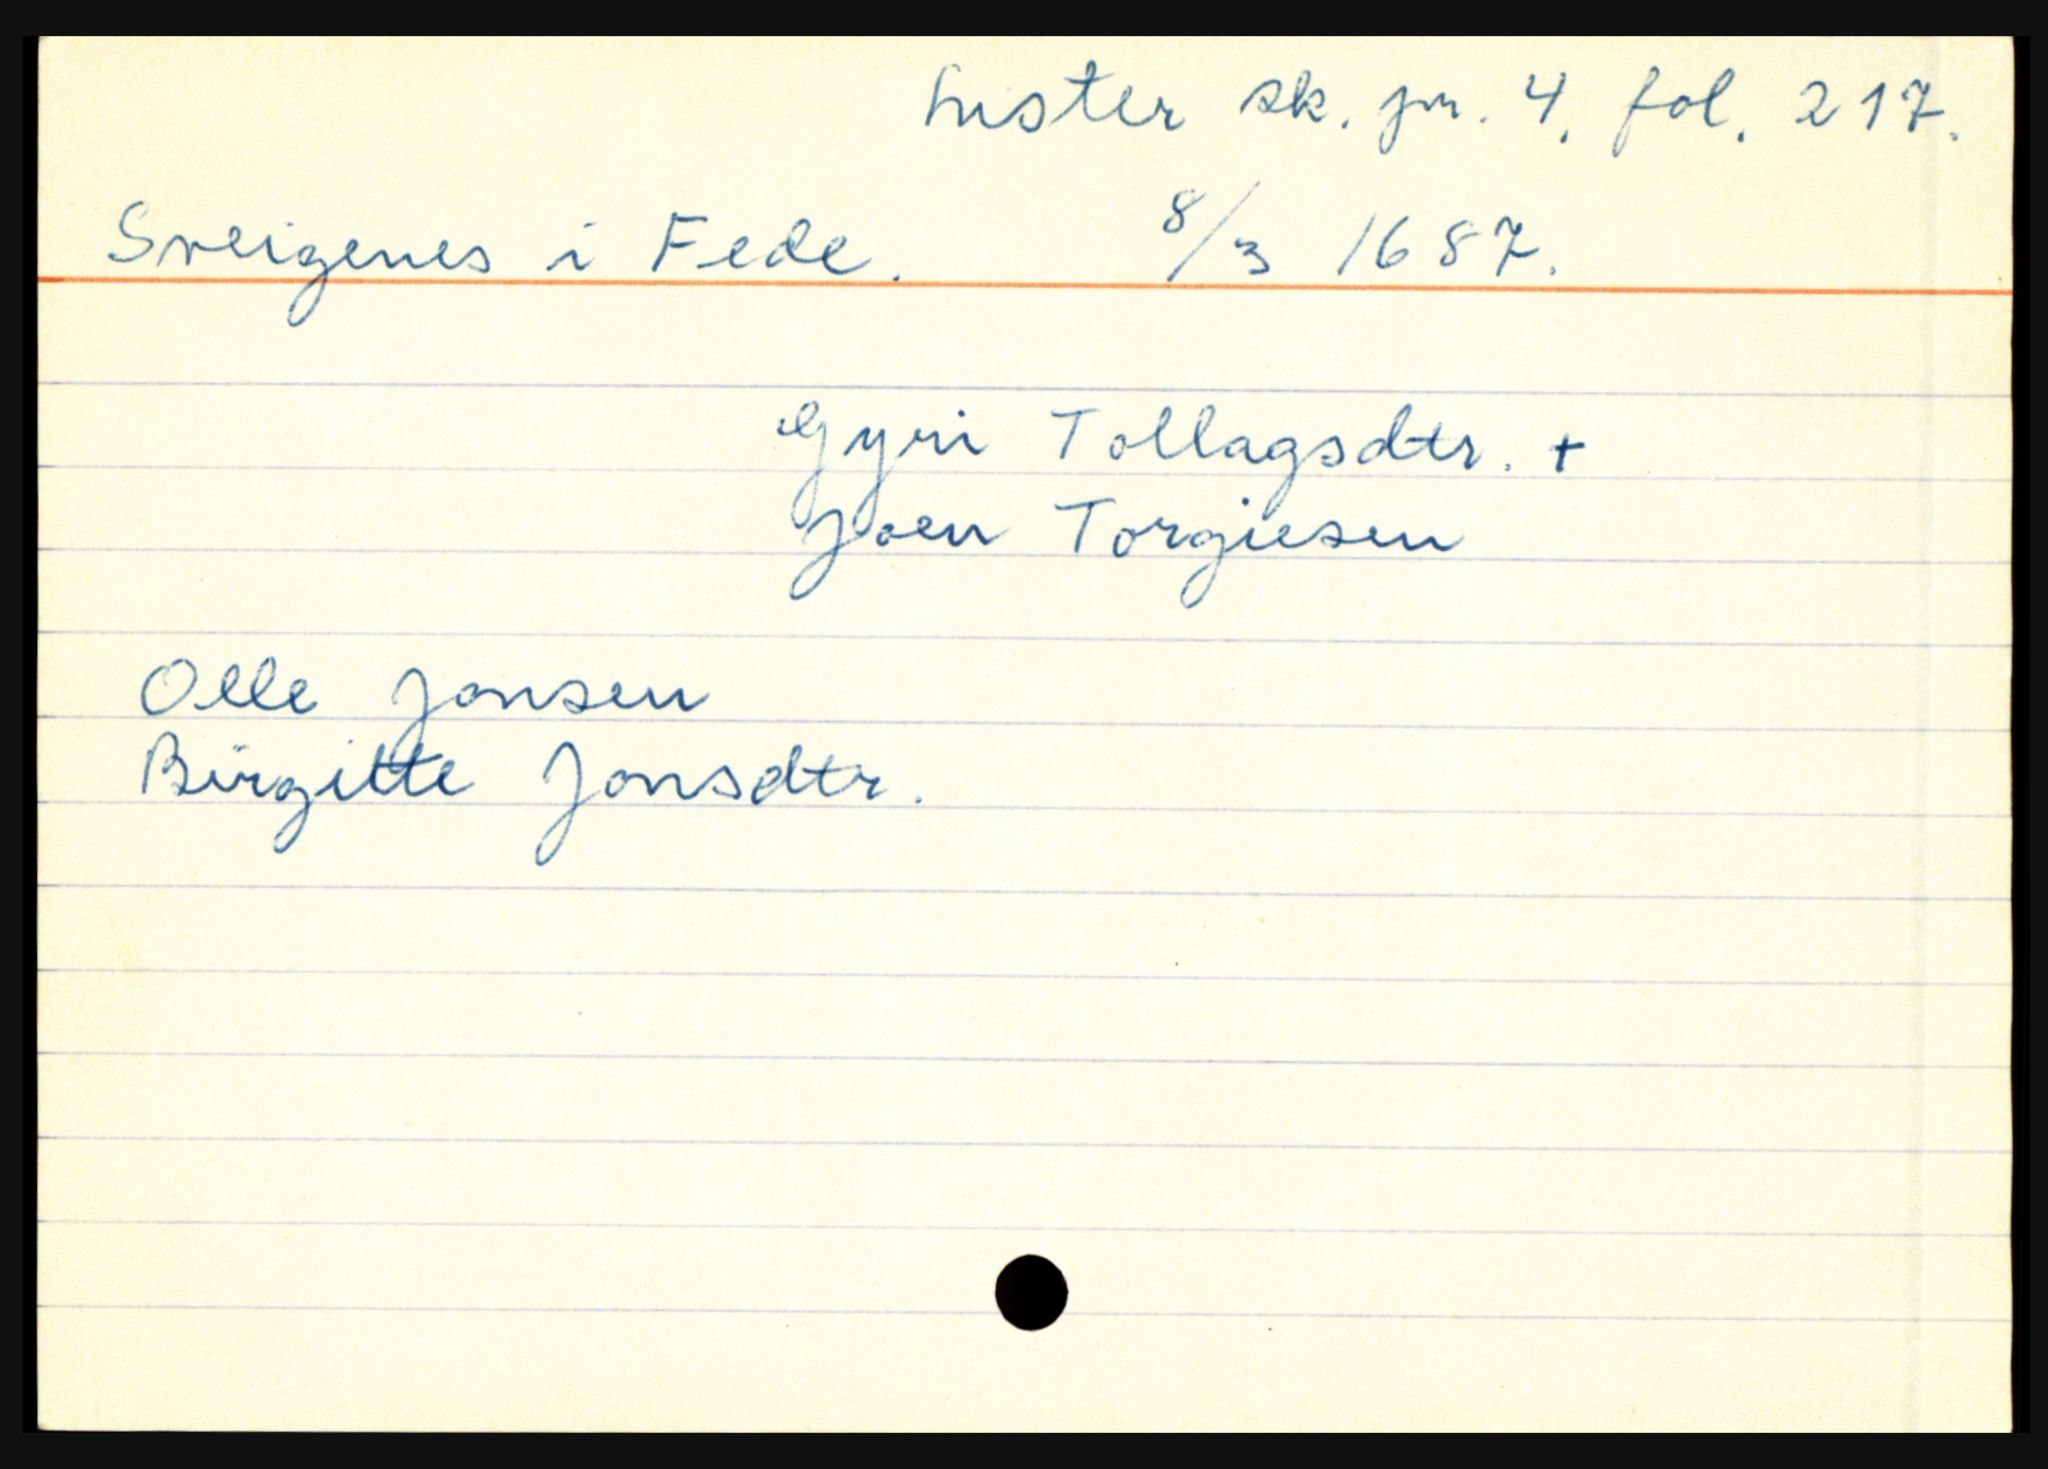 Lister sk. pr. 4, fol. 217.
Sveigenes i Fede. 8/3 1687.
Gyri Tollagsdtr. +
Joen Torgiesen
Olle Jonsen
Birgitte Jonsdtr.